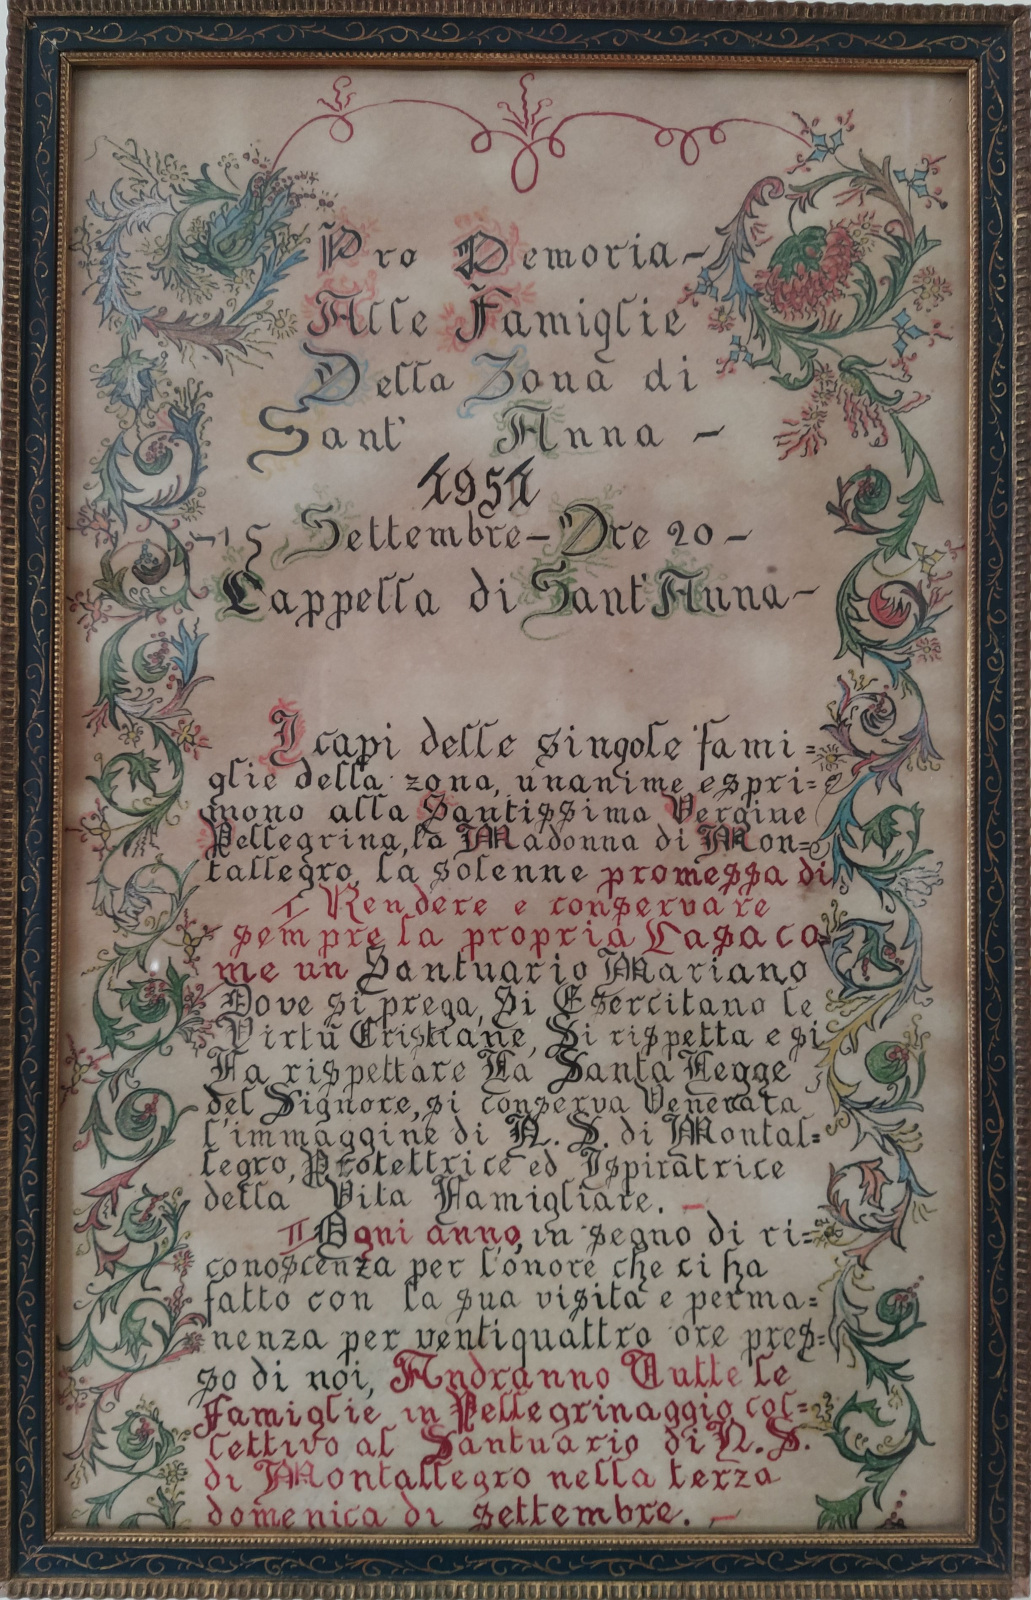 Pro Memoria-
Alle Famiglie
Della Zona di
Sant' Anna -
1951
-15 Settembre-Ore 20-
Cappella di Sant'Anna-
I capi delle singole fami=
glie della zona, unanime espri=
mono alla Santissima Vergine
Pellegrina, la Madonna di Mon=
tallegro, la solenne promessa di
I Rendere e conservare
sempre la propria Casa co=
me un Santuario Mariano
Dove si prega, Si Esercitano le
Virtù Cristiane, Si rispetta e si
Fa rispettare La Santa Legge
del Signore, si conserva Venerata
l'immaggine di N. S. di Montal=
legro, Protettrice ed Ispiratrice
della Vita Famigliare. -
II Ogni anno, in segno di ri=
conoscenza per l'onore che ci ha
fatto con la sua visita e perma=
nenza per ventiquattro ore pres=
so di noi, Andranno Tutte le
famiglie in Pellegrinaggio col=
lettivo al Santuario di N. S.
di Montallegro nella terza
domenica di settembre. -